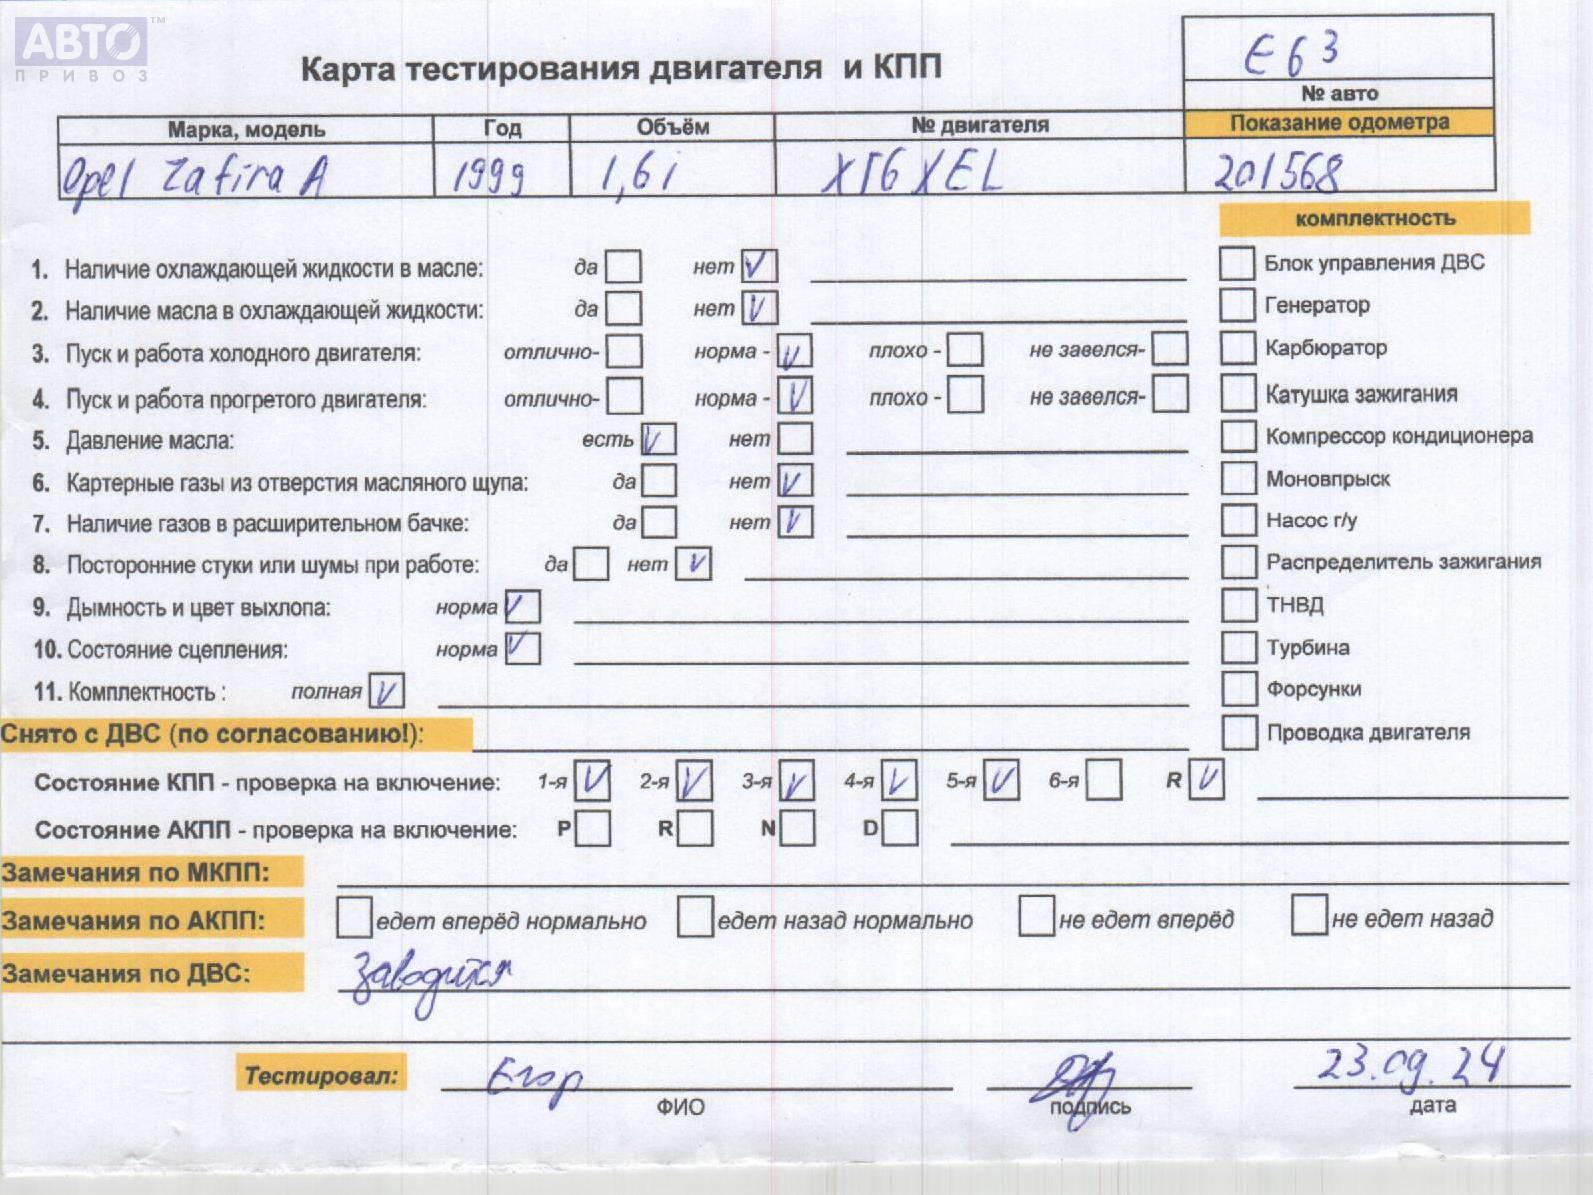 АВТО™
ПРИВОЗ
Карта тестирования двигателя и КПП
Е63
№ авто
Марка, модель Год Объём № двигателя Показание одометра
Opel Zafira A 1999 1,6i X16XEL 201568
комплектность
1. Наличие охлаждающей жидкости в масле: да нет V
Блок управления ДВС
2. Наличие масла в охлаждающей жидкости: да нет V
Генератор
3. Пуск и работа холодного двигателя: отлично- норма - V плохо - не завелся-
Карбюратор
4. Пуск и работа прогретого двигателя: отлично- норма - V плохо - не завелся-
Катушка зажигания
5. Давление масла: есть V нет
Компрессор кондиционера
6. Картерные газы из отверстия масляного щупа: да нет V
Моновпрыск
7. Наличие газов в расширительном бачке: да нет V
Насос г/у
8. Посторонние стуки или шумы при работе: да нет V
Распределитель зажигания
9. Дымность и цвет выхлопа: норма V
ТНВД
10. Состояние сцепления: норма V
Турбина
11. Комплектность : полная V
Форсунки
Снято с ДВС (по согласованию!):
Проводка двигателя
Состояние КПП - проверка на включение: 1-я V 2-я V 3-я V 4-я V 5-я V 6-я R V
Состояние АКПП - проверка на включение: P R N D
Замечания по МКПП:
Замечания по АКПП: едет вперёд нормально едет назад нормально не едет вперёд не едет назад
Замечания по ДВС: Заводится
Тестировал: Егор 23.09.24
ФИО подпись дата